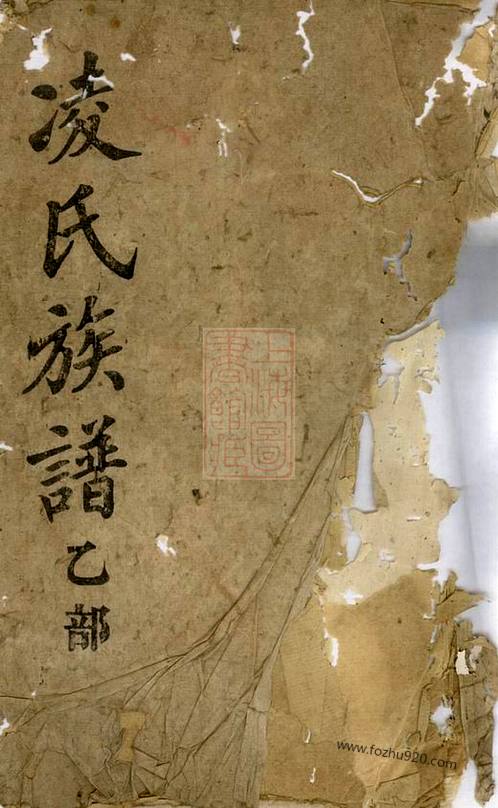 凌氏族譜乙部
上海圖
書館藏
www.fozhu920.com